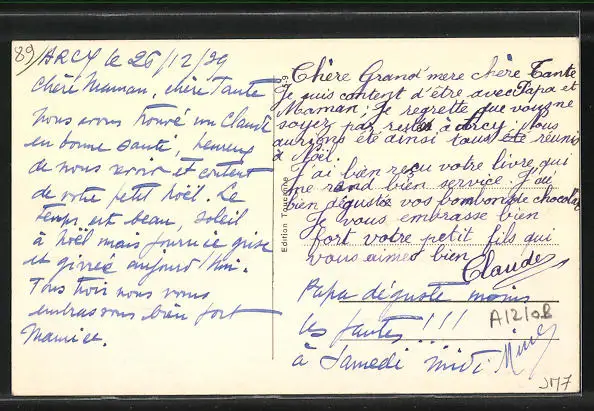 89)
ARCY le 26/12/39
Chère Maman, chère Tante
Nous avons trouvé un Claude
en bonne santé, heureux
de nous revoir et content
de votre petit Noël. Le
temps est beau, soleil
à Noël mais journée grise
et givrée aujourd'hui.
Tous trois nous vous
embrassons bien fort
Maurice.
Edition
Chère Grand'mère chère Tante
Je suis content d'être avec Papa et
Maman; Je regrette que vous ne
soyez pas restés à Arcy. Nous
aurions été ainsi tous été réunis
à Noël.
J'ai bien reçu votre livre qui
me rend bien service. J'ai
bien dégusté vos bonbons de chocolat
Je vous embrasse bien
fort votre petit fils qui
vous aime bien
Claude
Papa déguste moins
les fautes!!!
à Samedi midi
A12/08
JM7